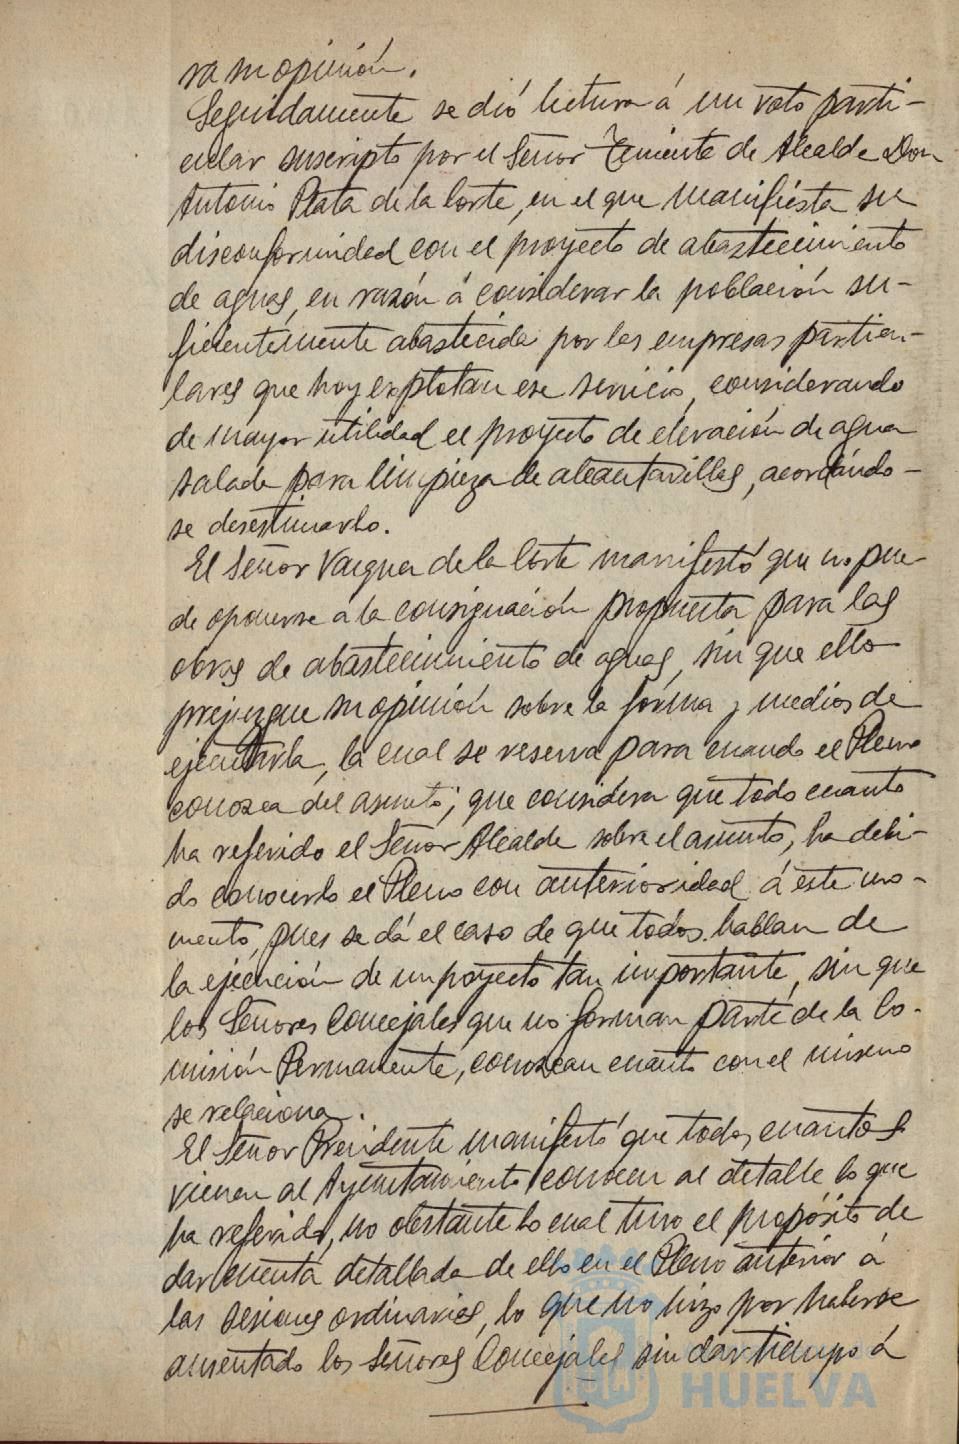 ra su opinión.
Seguidamente se dió lectura á un voto parti-
cular suscripto por el Señor Teniente de Alcalde Don
Antonio Plata de la Corte, en el que manifiésta su
disconformidad con el proyecto de abastecimiento
de aguas, en razón á considerar la población su-
ficientemente abastecida por las empresas particu-
lares que hoy explotan ese servicio, considerando
de mayor utilidad el proyecto de elevación de agua
salada para limpieza de alcantarillas, acordándo-
se desestimarlo.
El Señor Vazquez de la Corte manifestó que no pue-
de oponerse a la consignación propuesta para las
obras de abastecimiento de aguas, sin que ello
prejuzgue su opinión sobre la forma y medios de
ejecutarla, la cual se reserva para cuando el Pleno
conozca del asunto; que considera que todo cuanto
ha referido el Señor Alcalde sobre el asunto, ha debi-
do conocerlo el Pleno con anterioridad á este mo-
mento, pues se dá el caso de que todos hablan de
la ejecución de un proyecto tan importante, sin que
los Señores Concejales que no forman parte de la Co-
misión Permanente, conozcan cuanto con el mismo
se relaciona.
El Señor Presidente manifestó que todos cuantos
vienen al Ayuntamiento conocen al detalle lo que
ha referido, no obstante lo cual tuvo el propósito de
dar cuenta detallada de ello en el Pleno anterior á
las sesiones ordinarias, lo que no hizo por haberse
ausentado los Señores Concejales sin dar tiempo á
HUELVA